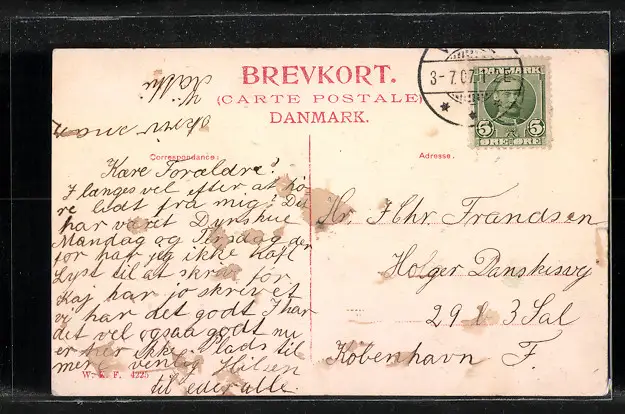 BREVKORT.
(CARTE POSTALE)
DANMARK.
3-7.07.
DANMARK
5 5
ØRE ØRE
Correspondance:
Adresse.
Kære Forældre?
I længes vel efter at hø-
re lidt fra mig? Der
har været Dyrskue
Mandag og Tirsdag der
for har jeg ikke haft
Lyst til at skrive før
Kaj har jo skrevet
vi har det godt I har
det vel ogsaa godt nu
er her ikke Plads til
mere venlig Hilsen
til eder alle.
Hr. J Chr. Frandsen
Holger Danskisvej
29 3 Sal
København F.
W. K. F. 4225